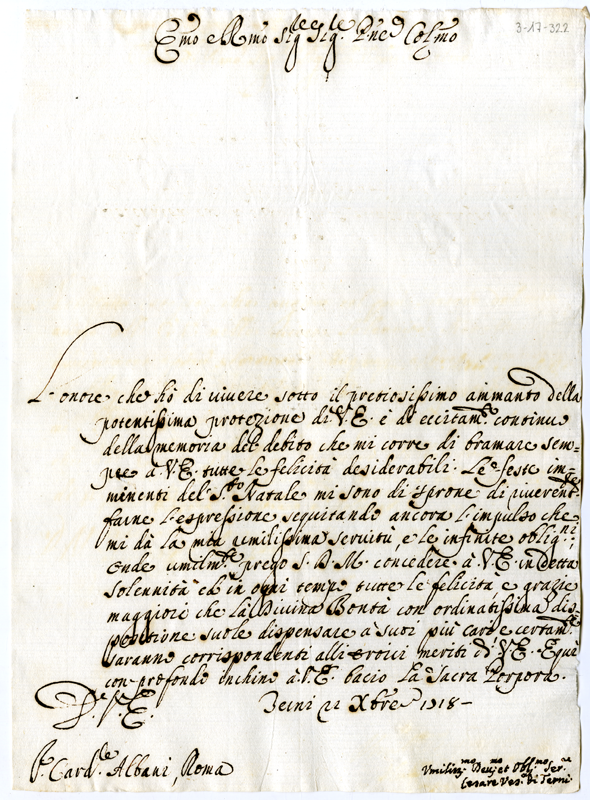 3-17-322
Emo e Rmo Sig.re Sig.re Pne Colmo
L'onore che hò di vivere sotto il pretiosissimo ammanto della
potentissima protezione di V.E. è di eccitam.to continuo
della memoria del debito che mi corre di bramare sem=
pre à V.E. tutte le felicità desiderabili. Le feste im=
minenti del S.to Natale mi sono di sprone di riverent.te
farne l'espressione seguitando ancora l'impulso che
mi dà la mia umilissima servitù, e le infinite oblig.ni;
Onde umilm.te prego S.D.M. concedere à V.E. in detta
solennità ed in ogni tempo tutte le felicità, e grazie
maggiori che la Divina Bontà con ordinatissima dis=
positione suole dispensare a suoi più cari e certam.te
saranno corrispondenti alli eroici meriti di V.E. E quì
con profondo inchino à V.E. bacio la Sacra Porpora.
D. V. E. Terni 21 Xbre 1718-
S.r Card.le Albani, Roma
Umiliss.mo Dev.mo et Obl.mo Ser.re
Cesare Ves. di Terni